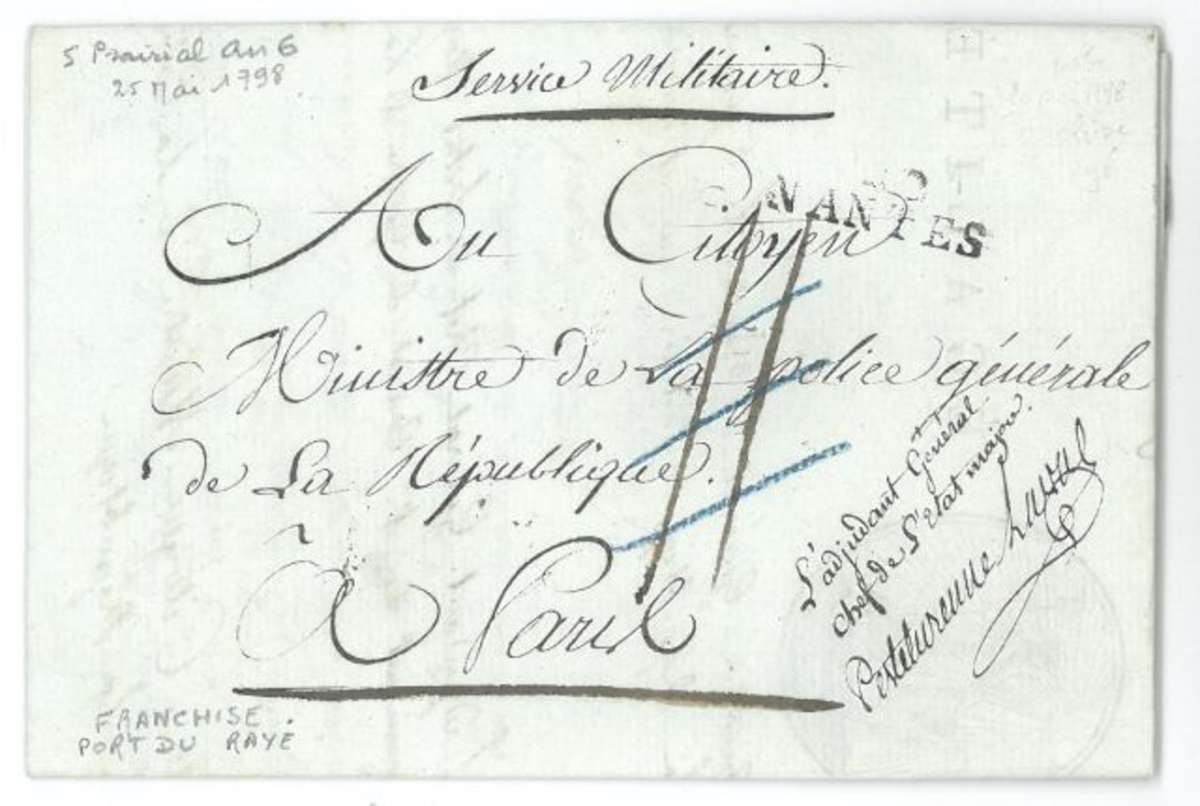 5 Prairial An 6
25 Mai 1798
Service Militaire.
NANTES
Au Citoyen
Ministre de La police générale
de La République.
à Paris
L'adjudant Général
chef de L'etat major.
FRANCHISE.
PORT DU RAYE